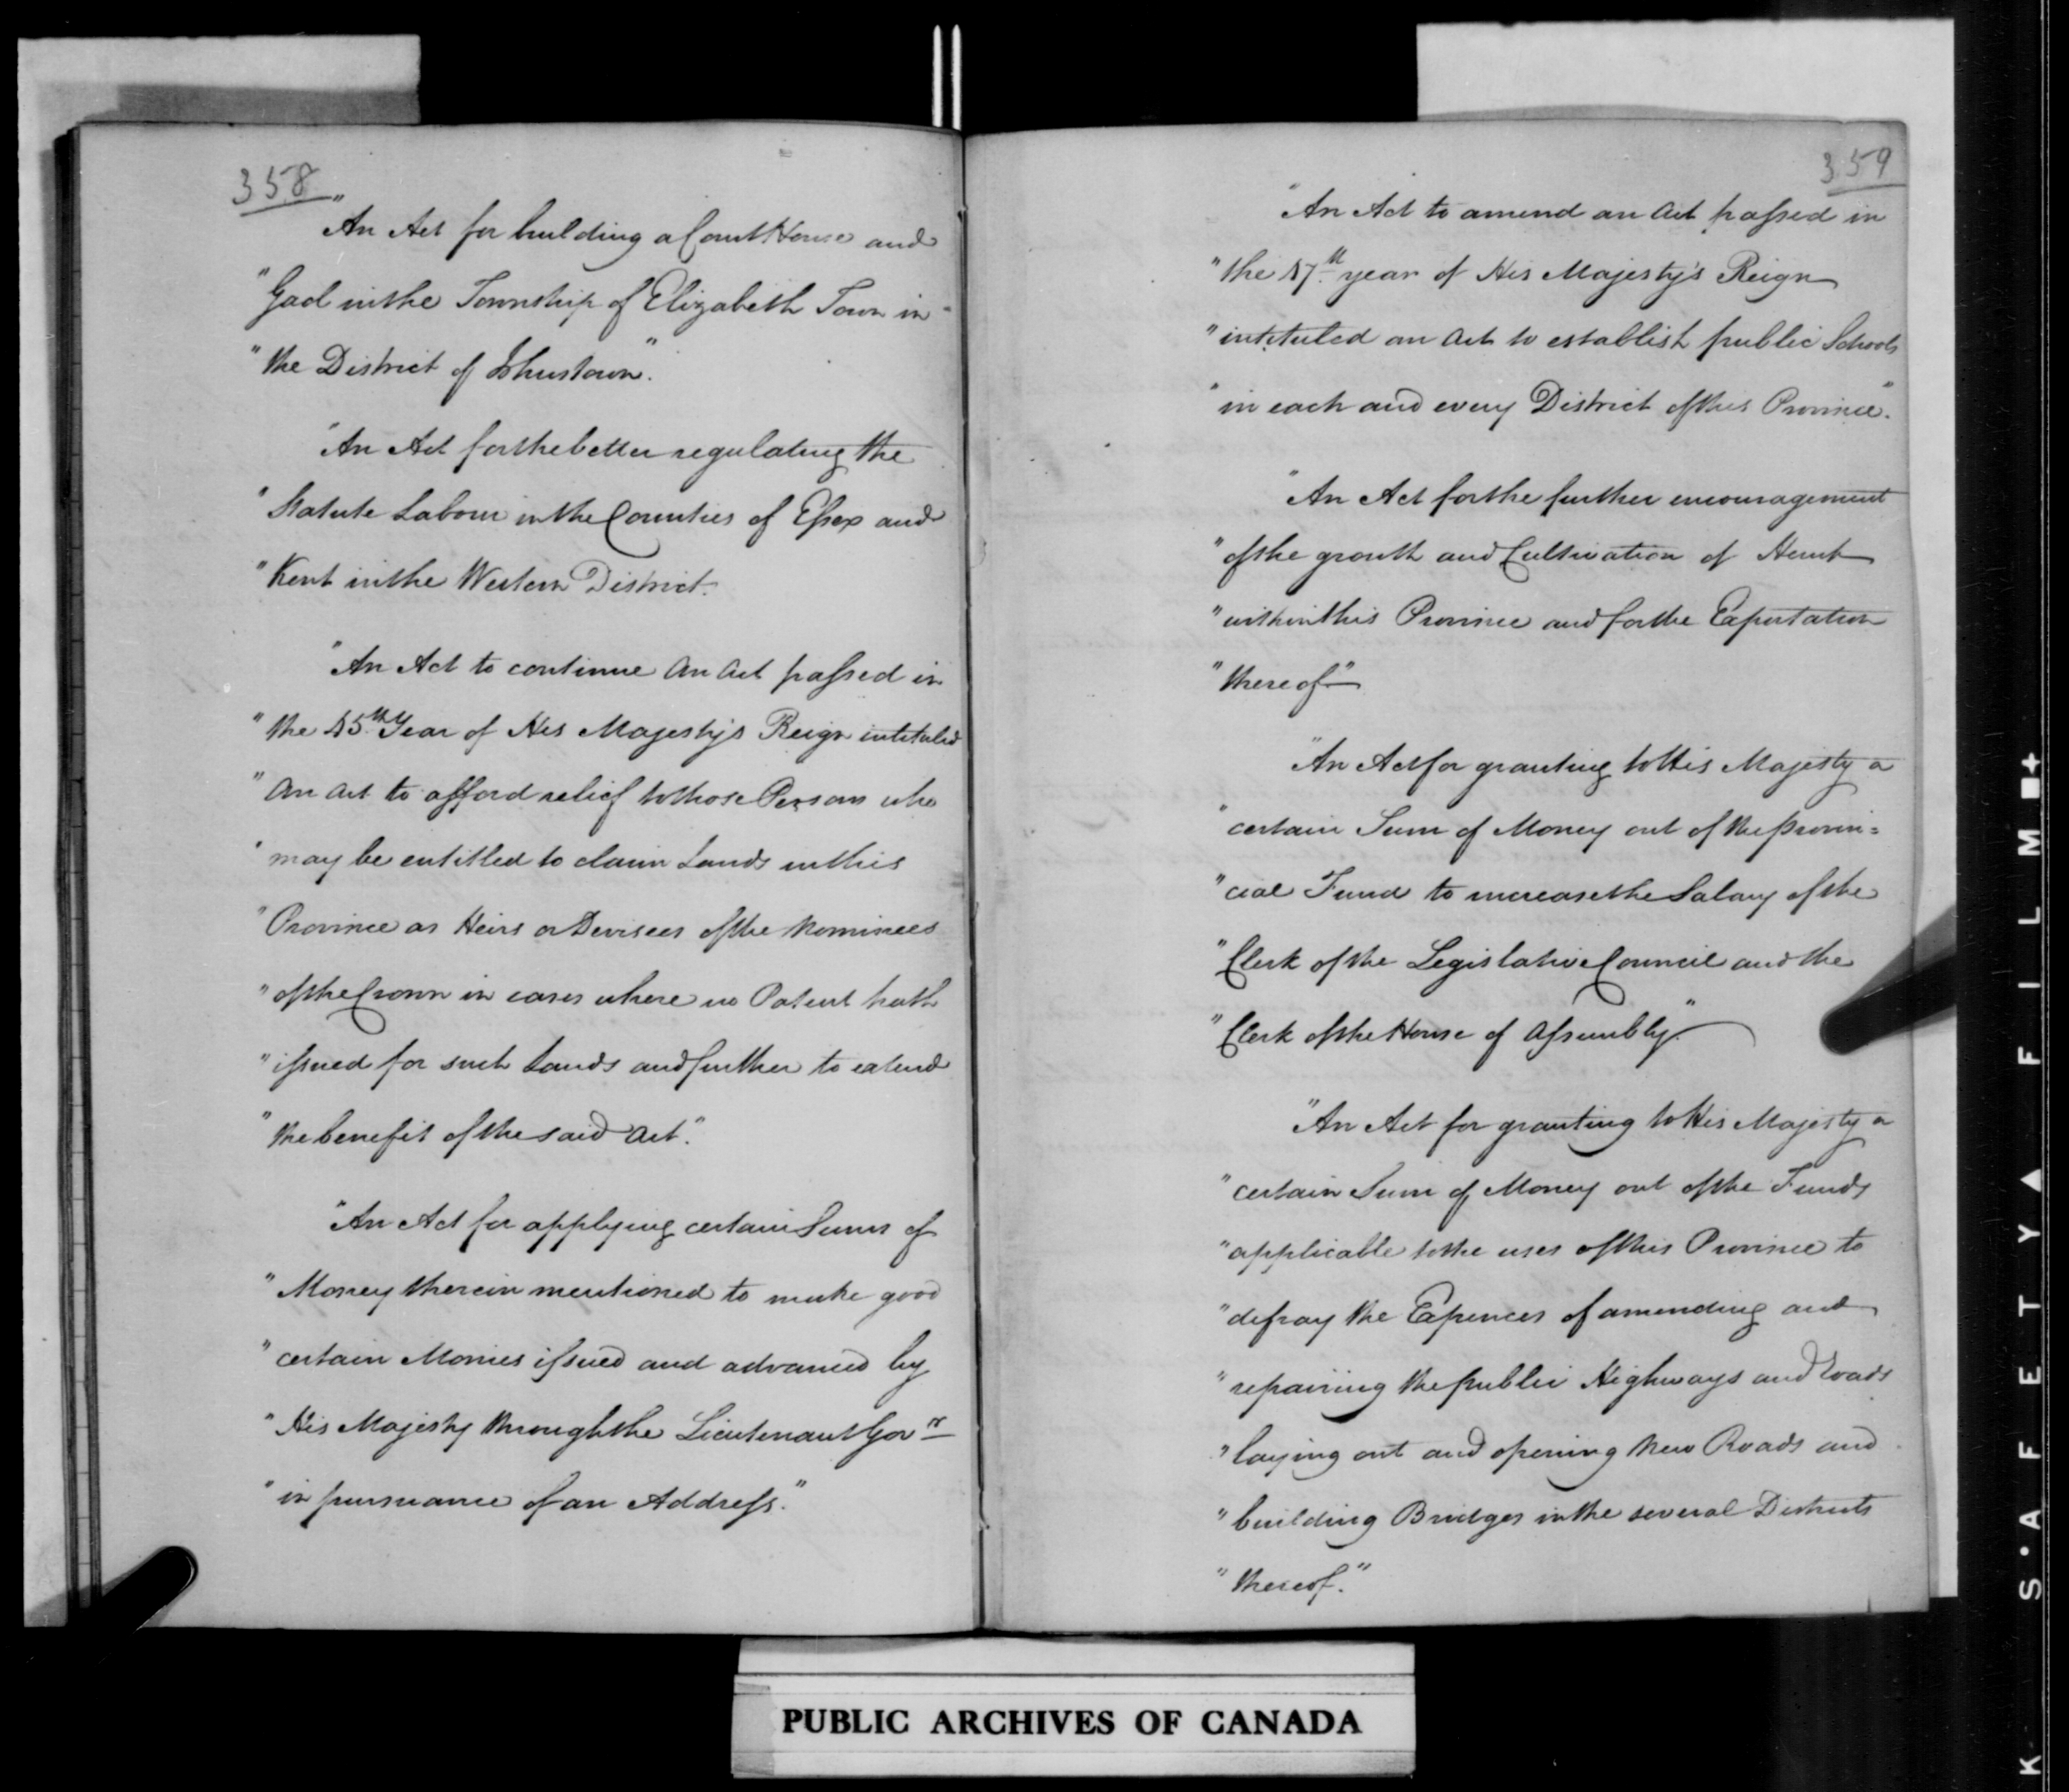 358
"An Act for building a Court House and
"Gaol in the Township of Elizabeth Town in
"the District of Johnstown."
"An Act for the better regulating the
"Statute Labour in the Counties of Essex and
"Kent in the Western District.
"An Act to continue an act passed in
"the 45th Year of His Majesty's Reign intituled
"an act to afford relief to those Persons who
"may be entitled to claim Lands in this
"Province as Heirs or Devisees of the Nominees
"of the Crown in cases where no Patent hath
"issued for such Lands and further to extend
"the benefit of the said act."
"An Act for applying certain Sums of
"Money therein mentioned to make good
"certain Monies issued and advanced by
"His Majesty through the Lieutenant Govr
"in pursuance of an Address."
359
"An Act to amend an act passed in
"the 47th year of His Majesty's Reign
"intituled an act to establish public Schools
"in each and every District of this Province."
"An Act for the further encouragement
"of the growth and Cultivation of Hemp
"within this Province and for the Exportation
"thereof"
"An Act for granting to His Majesty a
"certain Sum of Money out of the provin=
"cial Fund to increase the Salary of the
"Clerk of the Legislative Council and the
"Clerk of the House of Assembly."
"An Act for granting to His Majesty a
"certain Sum of Money out of the Funds
"applicable to the uses of this Province to
"defray the Expences of amending and
"repairing the public Highways and Roads
"laying out and opening new Roads and
"building Bridges in the several Districts
"thereof."
PUBLIC ARCHIVES OF CANADA
K S·A F E T Y ▲ F I L M ■+